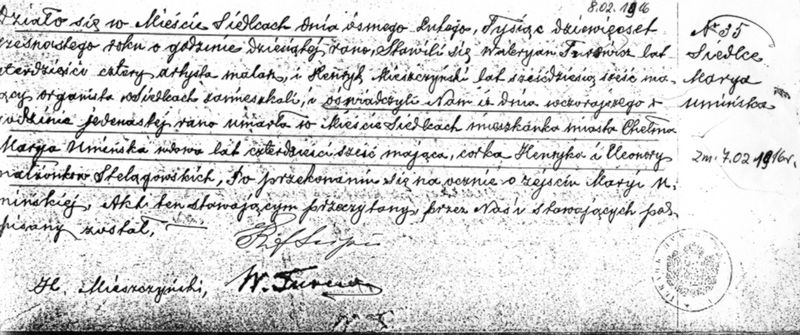 8.02.1916
Działo się w Mieście Siedlcach dnia ósmego Lutego, Tysiąc dziewięcset
szesnastego roku o godzinie dziesiątej rano, Stawili się Waleryan Turewicz lat
czterdzieści cztery artysta malarz, i Henryk Mieszczyński lat sześćdziesiąt sześć ma-
jący organista w Siedlcach zamieszkali, i oświadczyli Nam iż dnia wczorajszego o
godzinie jedenastej rano umarła w Mieście Siedlcach mieszkanka miasta Chełma
Marya Umińska wdowa lat czterdzieści sześć mająca, córka Henryka i Eleonory
małżonków Stelągowskich, Po przekonaniu się na ocznie o zejściu Maryi U-
mińskiej, Akt ten stawającym przeczytany, przez Nas i stawających pod-
pisany został,
H. Mieszczyński, W.
Nr 35
Siedlce
Marya
Umińska
zm. 7.02 1916r.